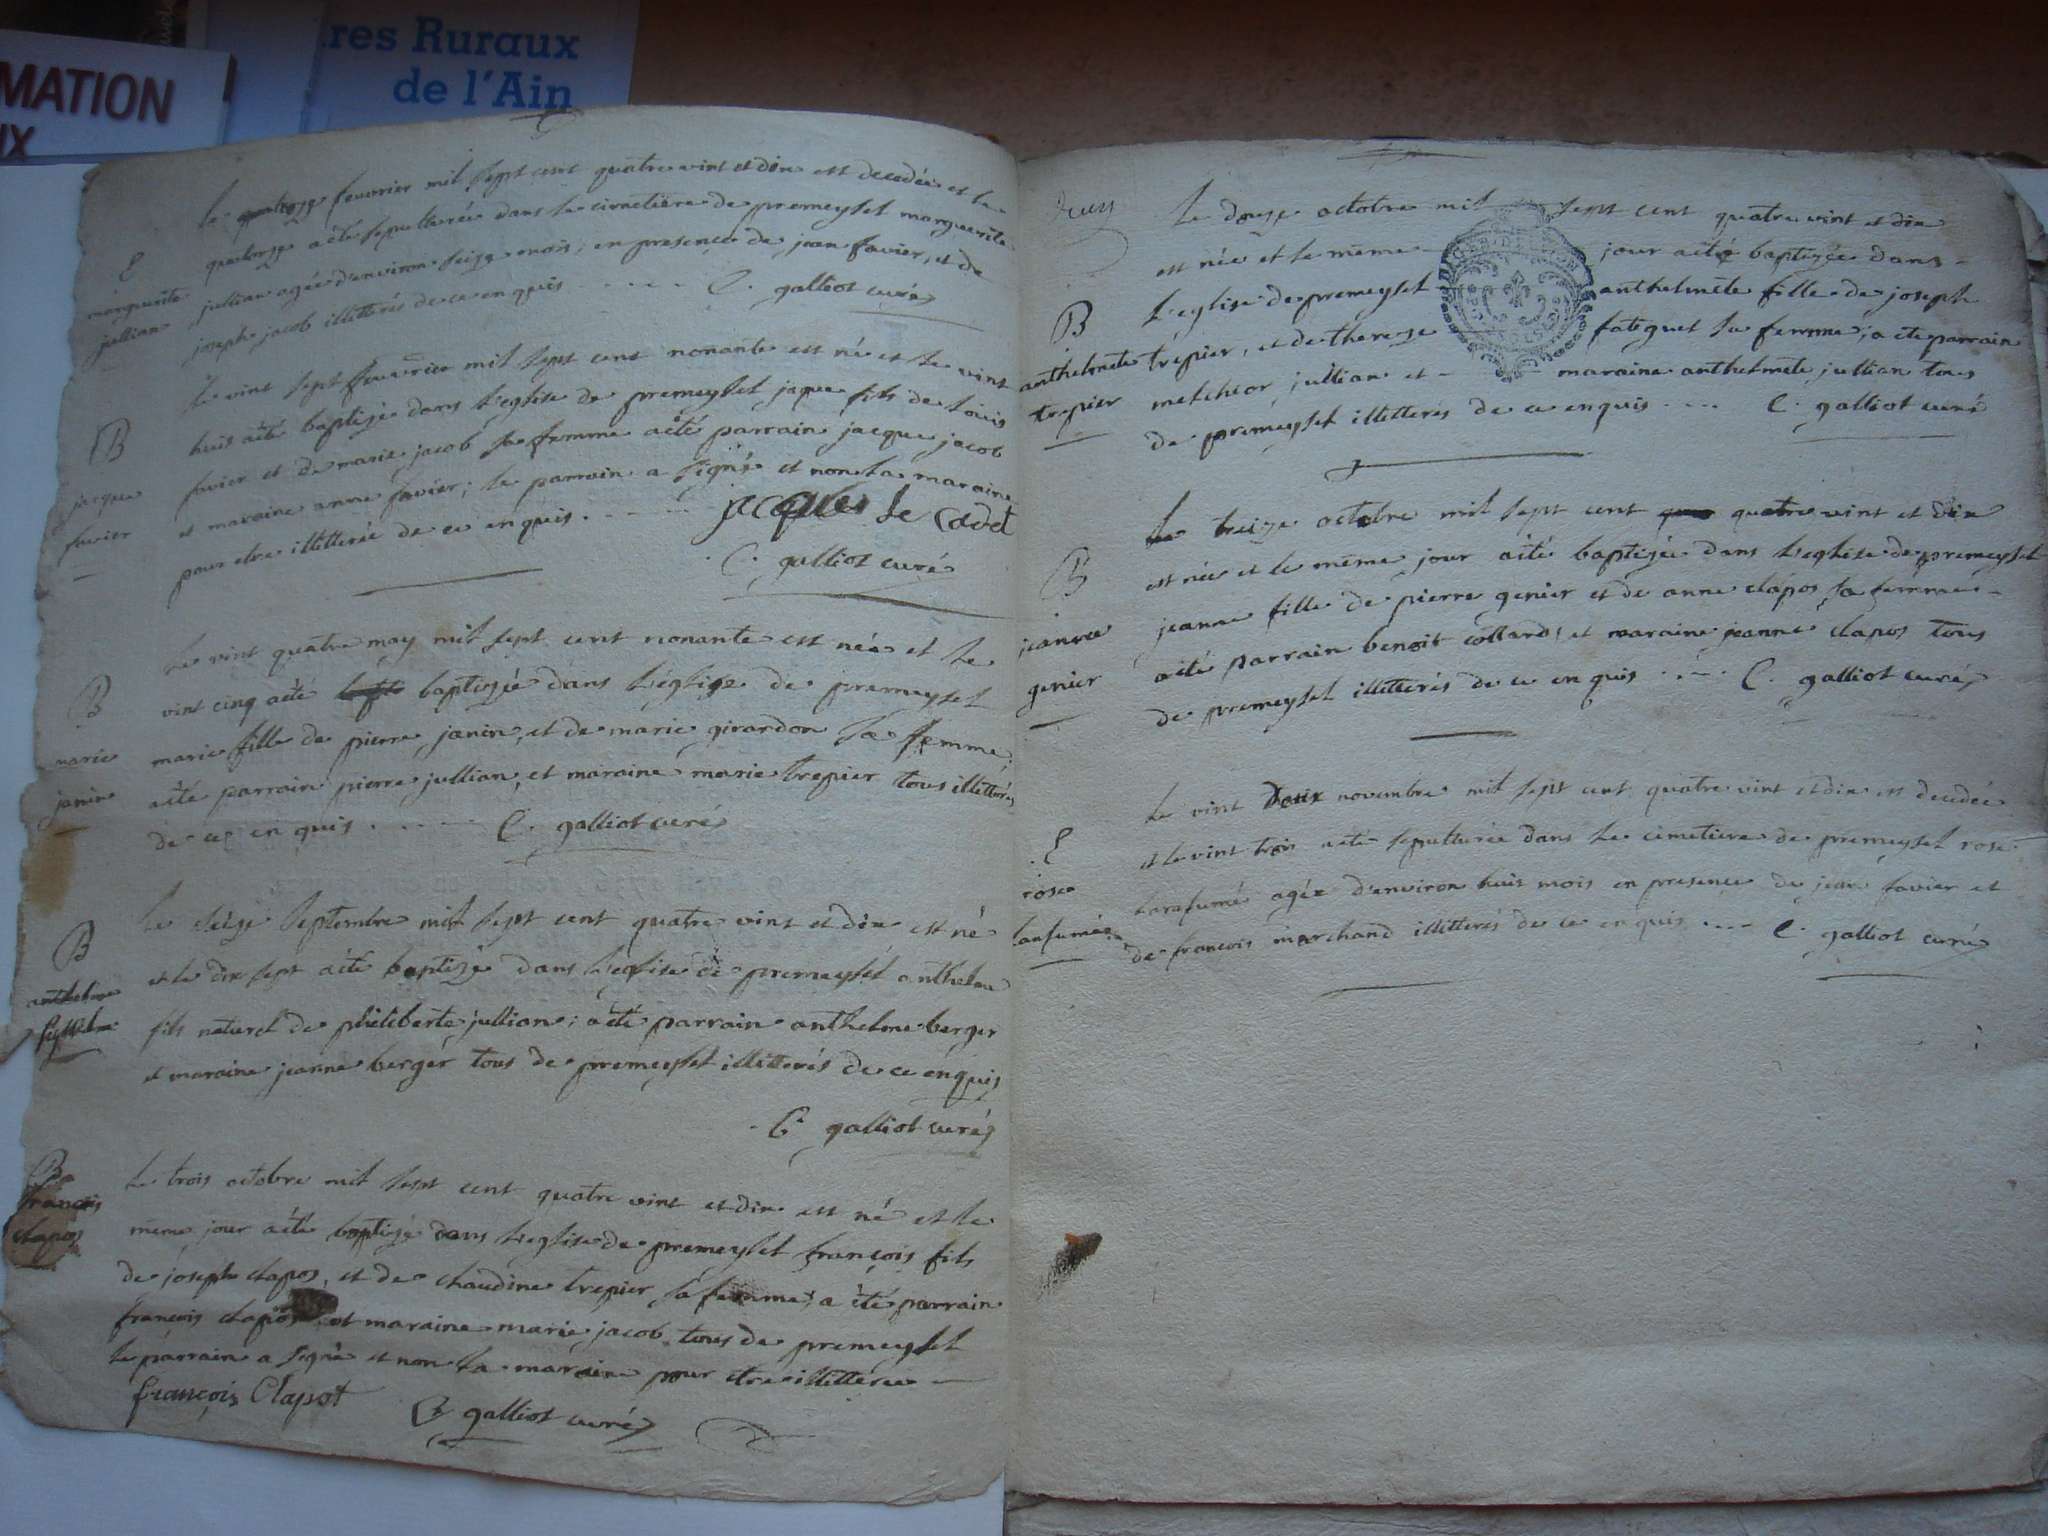 res Ruraux
de l'Ain
MATION
UX
le quatorze feuvrier mil sept cent quatre vint et dix est decedée et le
quatorze aété sepulturée dans le cimetière de premeyset marguerite
jullian agée d'environ seize mois; en presence de jean favier, et de
joseph jacob illittérés de ce enquis . . . . C. galliot curé
marguerite
jullian
le vint sept feuvrier mil sept cent nonante est né et le vint
huit aété baptizé dans l'eglise de premeyset jaque fils de louis
favier et de marie jacob sa femme aété parrain jacque jacob
et maraine anne favier; le parrain a signé et non la maraine
pour etre illitterée de ce enquis . . . . . jacques le cadet
C. galliot curé
B
jacque
favier
Le vint quatre may mil sept cent nonante est née et le
vint cinq aété baptizée dans l'église de premeyset
marie fille de pierre janin, et de marie girardon sa femme,
aété parrain pierre jullian, et maraine marie trepier tous illittérés
de ce enquis . . . . . C. galliot curé
B
marie
janin
le seize septembre mil sept cent quatre vint et dix est né
et le dix sept aété baptizé dans l'eglise de premeyset anthelme
fils naturel de philiberte jullian; aété parrain anthelme berger
et maraine jeanne berger tous de premeyset illitterés de ce enquis
C. galliot curé
B
anthelme
le trois octobre mil sept cent quatre vint et dix est né et le
meme jour aété baptizé dans l'eglise de premeyset françois fils
de joseph clapos, et de claudine trepier sa femme; a été parrain
françois clapos et maraine marie jacob tous de premeyset
le parrain a signé et non la maraine pour etre illitterée
françois Clapot C. galliot curé
B
françois
clapos
Le douze octobre mil sept cent quatre vint et dix
est née et le même jour aété baptizée dans
L'eglise de premeyset anthelmète fille de joseph
trepier, et de thereze fateguet sa femme; a ete parrain
melchior jullian et maraine anthelmète jullian tous
de premeyset illitterés de ce enquis . . . . C. galliot curé
B
anthelmète
trepier
Le treize octobre mil sept cent quatre vint et dix
est née et le même jour aété baptizée dans l'eglise de premeyset
jeanne fille de pierre genier et de anne clapos sa femme
aété parrain benoit collard, et maraine jeanne clapos tous
de premeyset illitterés de ce enquis . . . . C. galliot curé
B
jeanne
genier
Le vint deux novembre mil sept cent quatre vint et dix est decedée
et le vint trois aété sepulturée dans le cimetiere de premeyset rose
larafumé agée d'environ huit mois en presence de jean favier et
de francois marchand illitterés de ce enquis . . . . C. galliot curé
rose